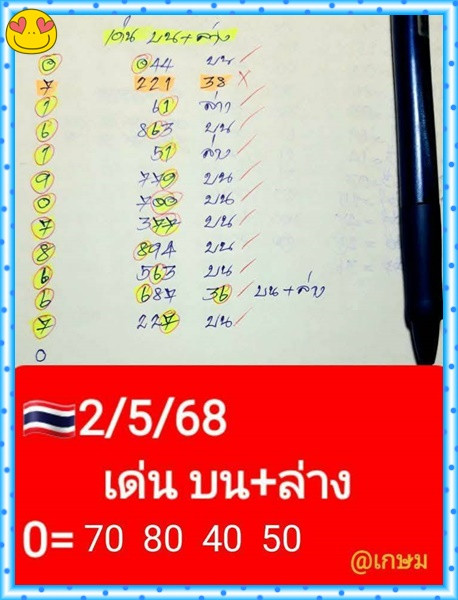 เด่น บน+ล่าง
0 044 บน
7 221 38 x
1 61 ล่าง
6 863 บน
1 51 ล่าง
9 779 บน
0 700 บน
7 377 บน
8 894 บน
6 563 บน
6 687 36 บน+ล่าง
7 227 บน
0
2/5/68
เด่น บน+ล่าง
0= 70 80 40 50
@เกษม